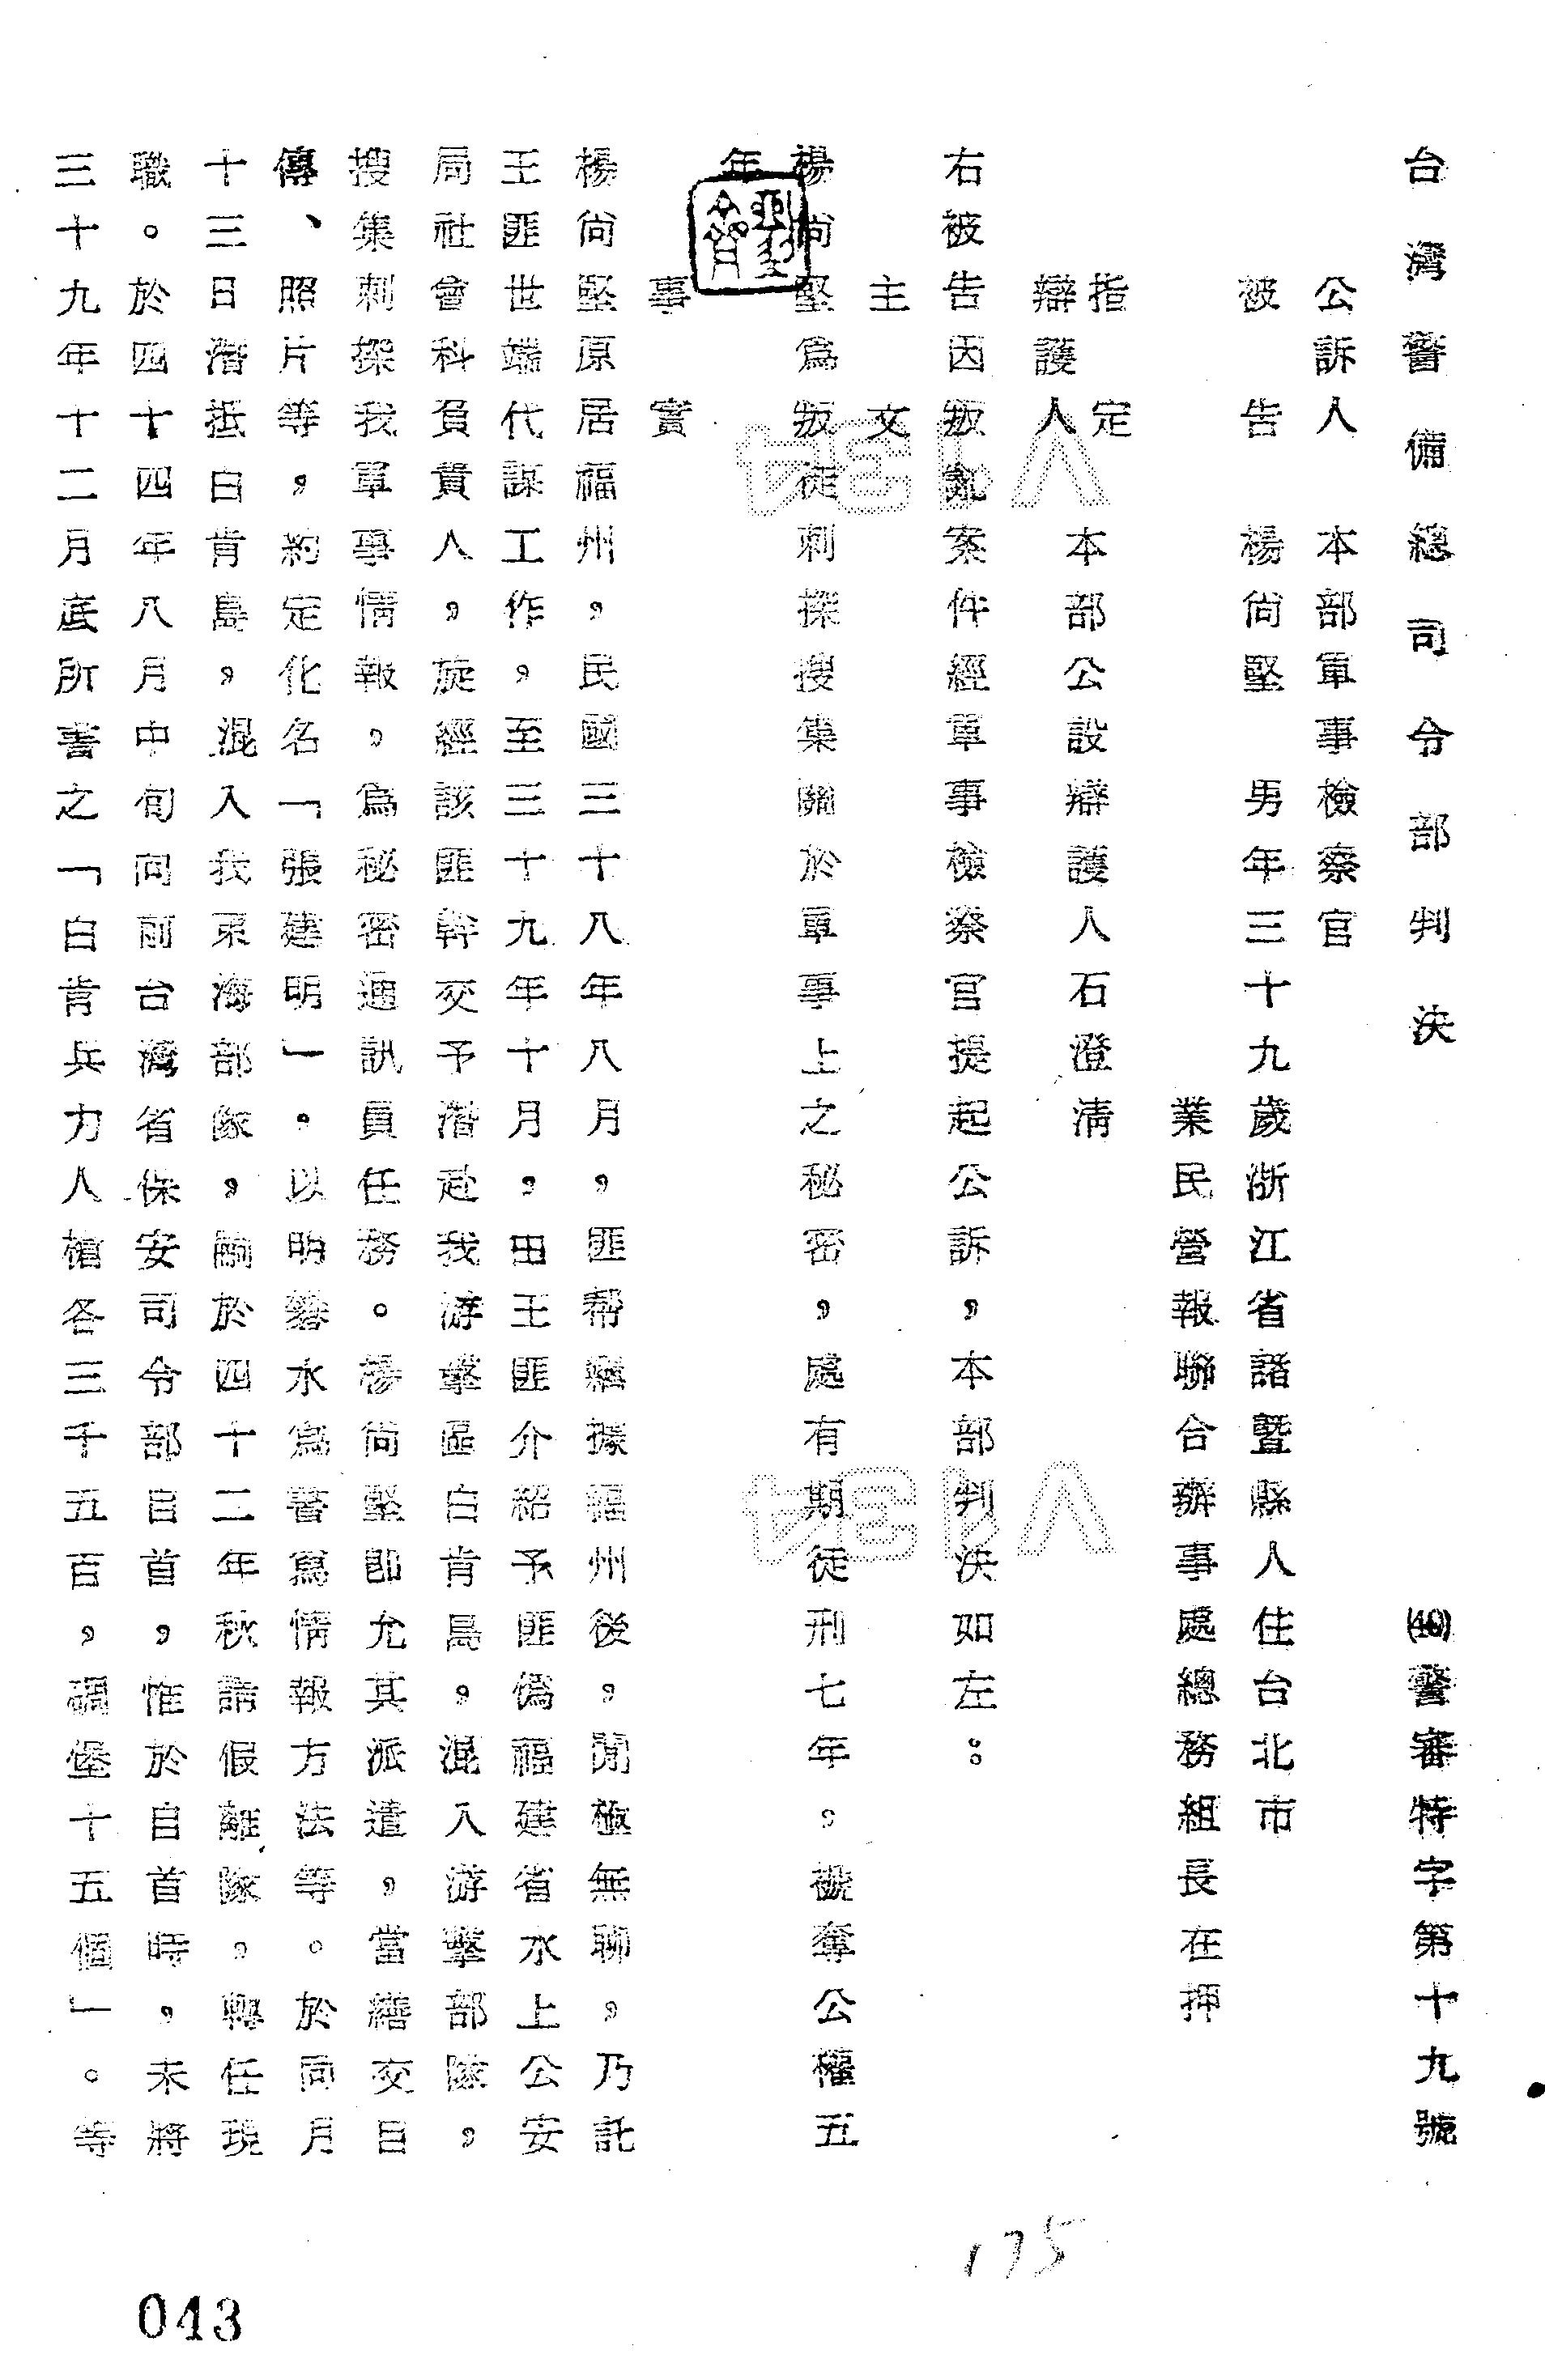 台灣警備總司令部判決
警審特字第十九號
公訴人 本部軍事檢察官
被告 楊尙堅 男年三十九歲浙江省諸暨縣人住台北市
業民營報聯合辦事處總務組長在押
指定
辯護人 本部公設辯護人石澄淸
右被告因叛亂案件經軍事檢察官提起公訴，本部判決如左：
主文
楊尙堅爲叛徒刺探搜集關於軍事上之秘密，處有期徒刑七年。褫奪公權五
年
事實
楊尙堅原居福州，民國三十八年八月，匪帮竊據福州後，閒極無聊，乃託
王匪世端代謀工作，至三十九年十月，由王匪介紹予匪僞福建省水上公安
局社會科負責人，旋經該匪幹交予潛赴我游擊區白肯島，混入游擊部隊，
搜集刺探我軍事情報，爲秘密通訊員任務。楊尙堅卽允其派遣，當繕交自
傳、照片等，約定化名「張建明」。以明礬水爲書寫情報方法等。於同月
十三日潛抵白肯島，混入我東海部隊，嗣於四十二年秋請假離隊，轉任現
職。於四十四年八月中旬向前台灣省保安司令部自首，惟於自首時，未將
三十九年十二月底所書之「白肯兵力人槍各三千五百，碉堡十五個」。等
175
043